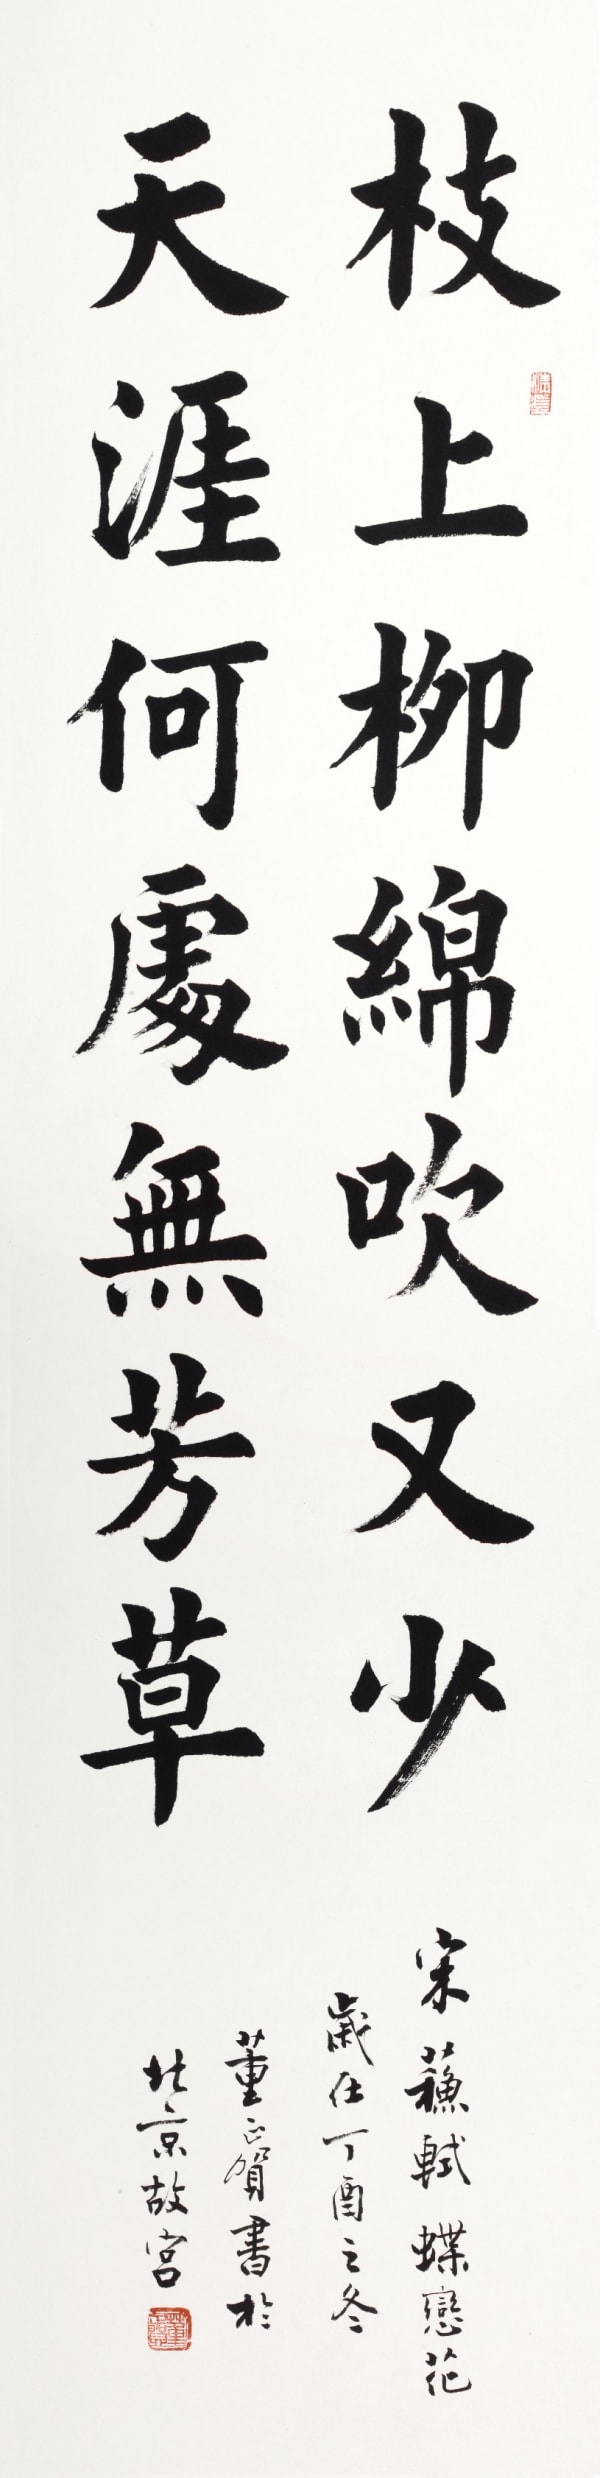 枝上柳綿吹又少
天涯何處無芳草
宋蘇軾蝶戀花
歲在丁酉之冬
董正賀書於
北京故宮